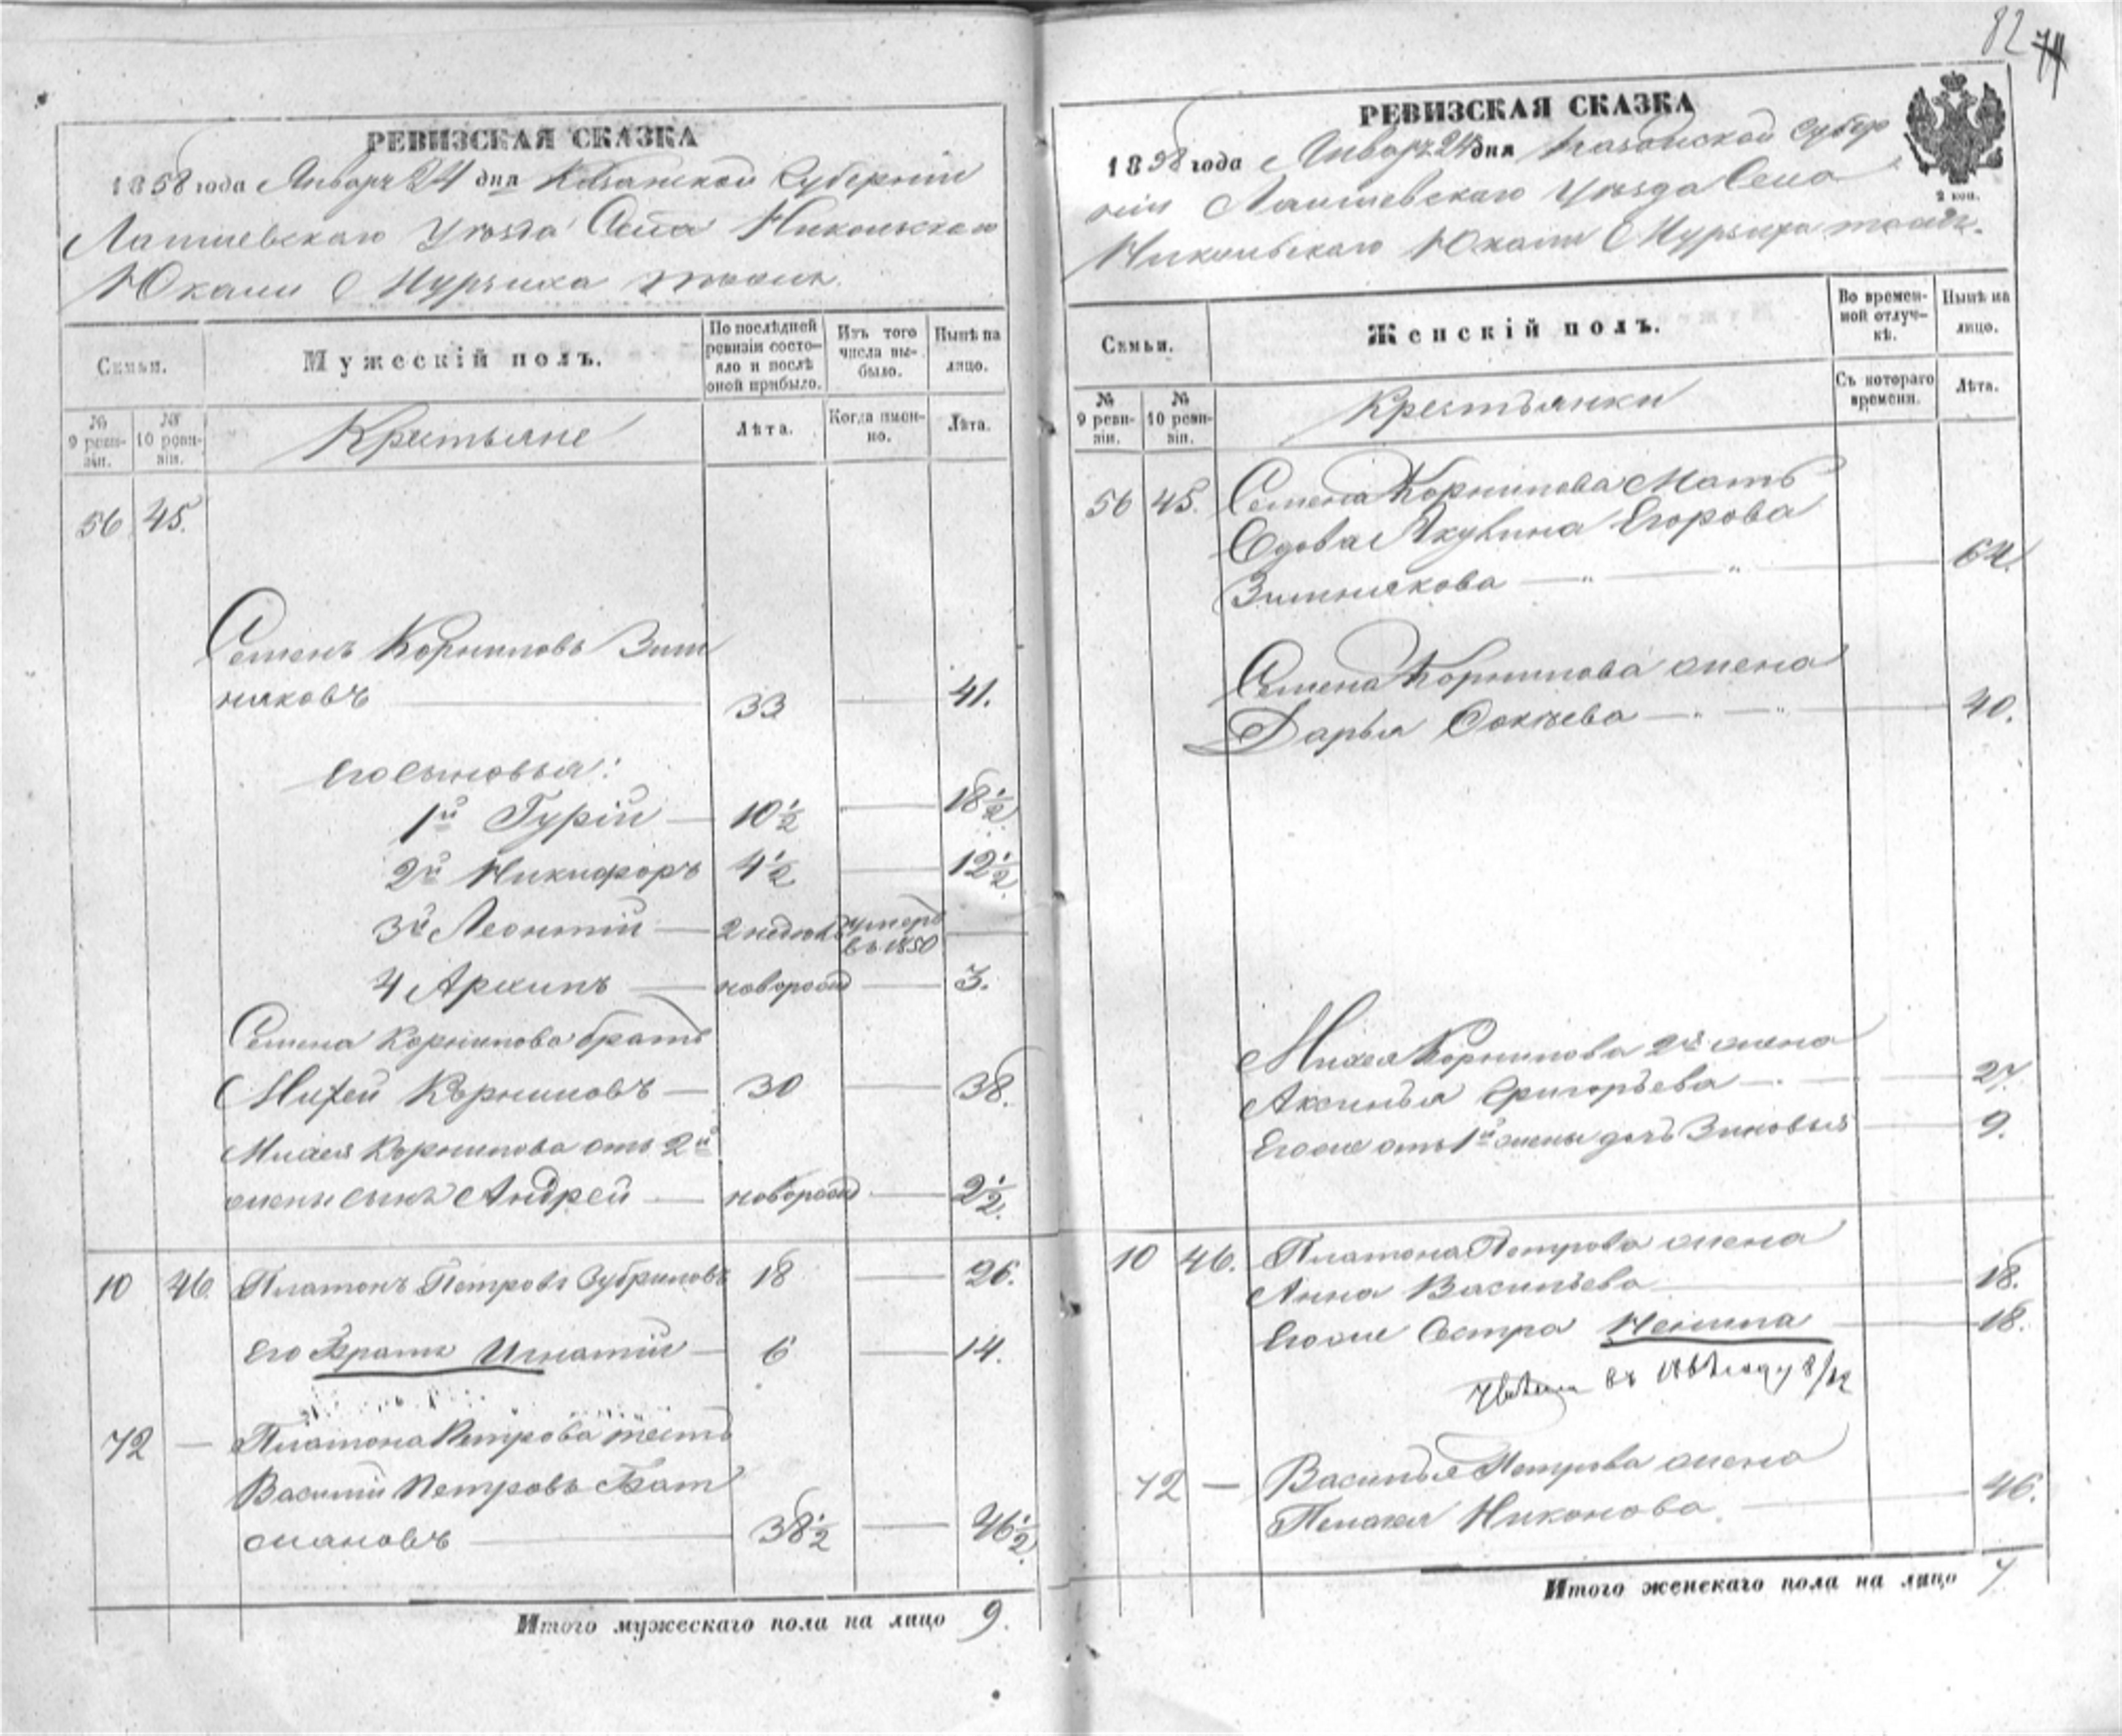 82
РЕВИЗСКАЯ СКАЗКА
1858 года Января 24 дня Казанской Губернiи
Лаишевскаго Уѣзда Села Никольскаго
Юкали
Семьи.
Мужескiй полъ.
По послѣдней ревизiи состояло и послѣ оной прибыло.
Изъ того числа выбыло.
Нынѣ на лицо.
№ 9 ревизiи.
№ 10 ревизiи.
Крестьяне
Лѣта.
Когда именно.
Лѣта.
56 45.
Семенъ Корниловъ Зим
няковъ 33 41.
Его сыновья:
1й Гурiй 10 1/2 18 1/2
2й Никифоръ 4 1/2 12 1/2
3й Леонтiй 2 недель умеръ въ 1850
4 Архипъ новорожд 3.
Семена Корнилова братъ
Михей Корниловъ 30 38.
Михея Корнилова отъ 2й
жены сынъ Андрей новорожд 2 1/2
10 46. Платонъ Петровъ Зубриловъ 18 26.
Его Братъ Игнатiй 6 14.
72 — Платона Петрова тесть
Василiй Петровъ Бат
мановъ 38 1/2 46 1/2
Итого мужескаго пола на лицо 9.
РЕВИЗСКАЯ СКАЗКА
1858 года Января 24 дня Казанской Губер
нiи Лаишевскаго Уѣзда Села
Никольскаго Юкали
2 коп.
Семьи.
Женскiй полъ.
Во временной отлучкѣ.
Нынѣ на лицо.
№ 9 ревизiи.
№ 10 ревизiи.
Крестьянки
Съ котораго времени.
Лѣта.
56 45. Семена Корнилова Мать
Вдова Акулина Егорова
Зимнякова 64.
Семена Корнилова жена
Дарья 40.
Михея Корнилова 2я жена
Аксинья Григорьева 27.
Его же отъ 1й жены дочь Зиновья 9.
10 46. Платона Петрова жена
Анна Васильева 18.
Его же Сестра 18.
72 — Василья Петрова жена
Пелагея Никонова 46.
Итого женскаго пола на лицо 7